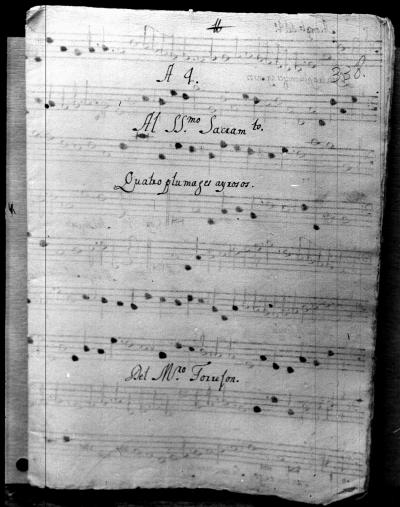 338.
A 4.
Al SS.mo Sacram.to.
Quatro plumages ayrosos.
Del M.ro Torrejon.